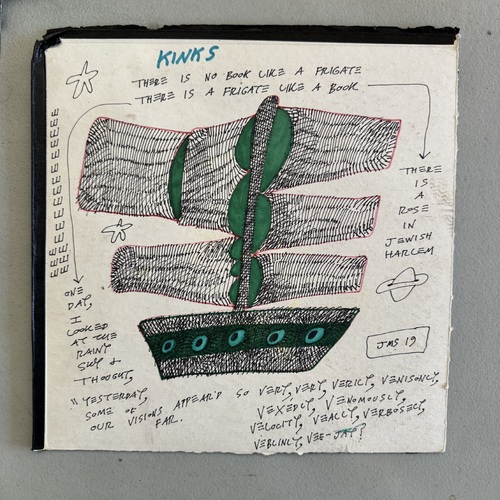 KINKS
THERE IS NO BOOK LIKE A FRIGATE
THERE IS A FRIGATE LIKE A BOOK
THERE
IS
A
ROSE
IN
JEWISH
HARLEM
EEEEEEEEEEEEE
ONE
DAY,
I
LOOKED
AT THE
RAINY
SKY &
THOUGHT,
JMS 19
"YESTERDAY,
SOME OF
OUR VISIONS APPEAR'D SO VERY, VERY, VERILY, VENISONLY,
FAR.
VEXEDLY, VENOMOUSLY,
VELOCITY, VEALLY, VERBOSELY,
VEBLINLY, VEE-JAY?